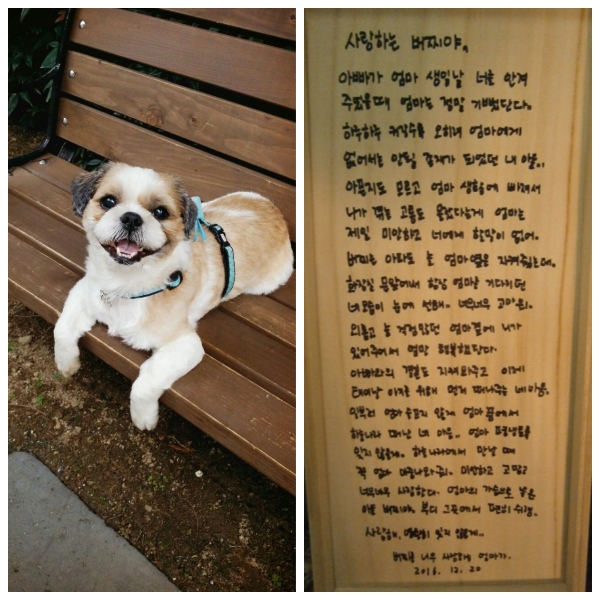 사랑하는 버찌야,
아빠가 엄마 생일날 너를 안겨
주었을때 엄마는 정말 기뻤단다.
하루하루 커갈수록 오히려 엄마에게
없어서는 안될 존재가 되었던 내 아들,,
아픈지도 모르고 엄마 생활에 빠져서
나가 겪는 고통도 몰랐다는게 엄마는
제일 미안하고 너에게 할말이 없어.
버찌는 아파도 늘 엄마옆을 지켜줬는데,
화장실 문앞에서 항상 엄마를 기다리던
네모습이 눈에 선해. 너무너무 고마워.
외롭고 늘 걱정많던 엄마곁에 니가
있어주어서 엄만 행복했단다.
아빠와의 결혼도 지켜봐주고 이제
태어날 아기를 위해 먼저 떠나주는 네 마음,
일부러 엄마 슬프지 않게 엄마 품에서
하늘나라 떠난 너의 마음.. 엄마 평생토록
잊지 않을게. 하늘나라에서 만날 때
꼭 엄마 마중나와줘. 미안하고 고맙고
너무너무 사랑한다. 엄마의 가슴으로 낳은
아들 버찌야, 부디 그곳에서 편히 쉬렴.
사랑해, 영원히 잊지 않을게..
버찌를 너무 사랑하는 엄마가.
2016. 12. 20